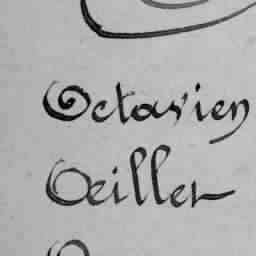 Octavien
Oeillet